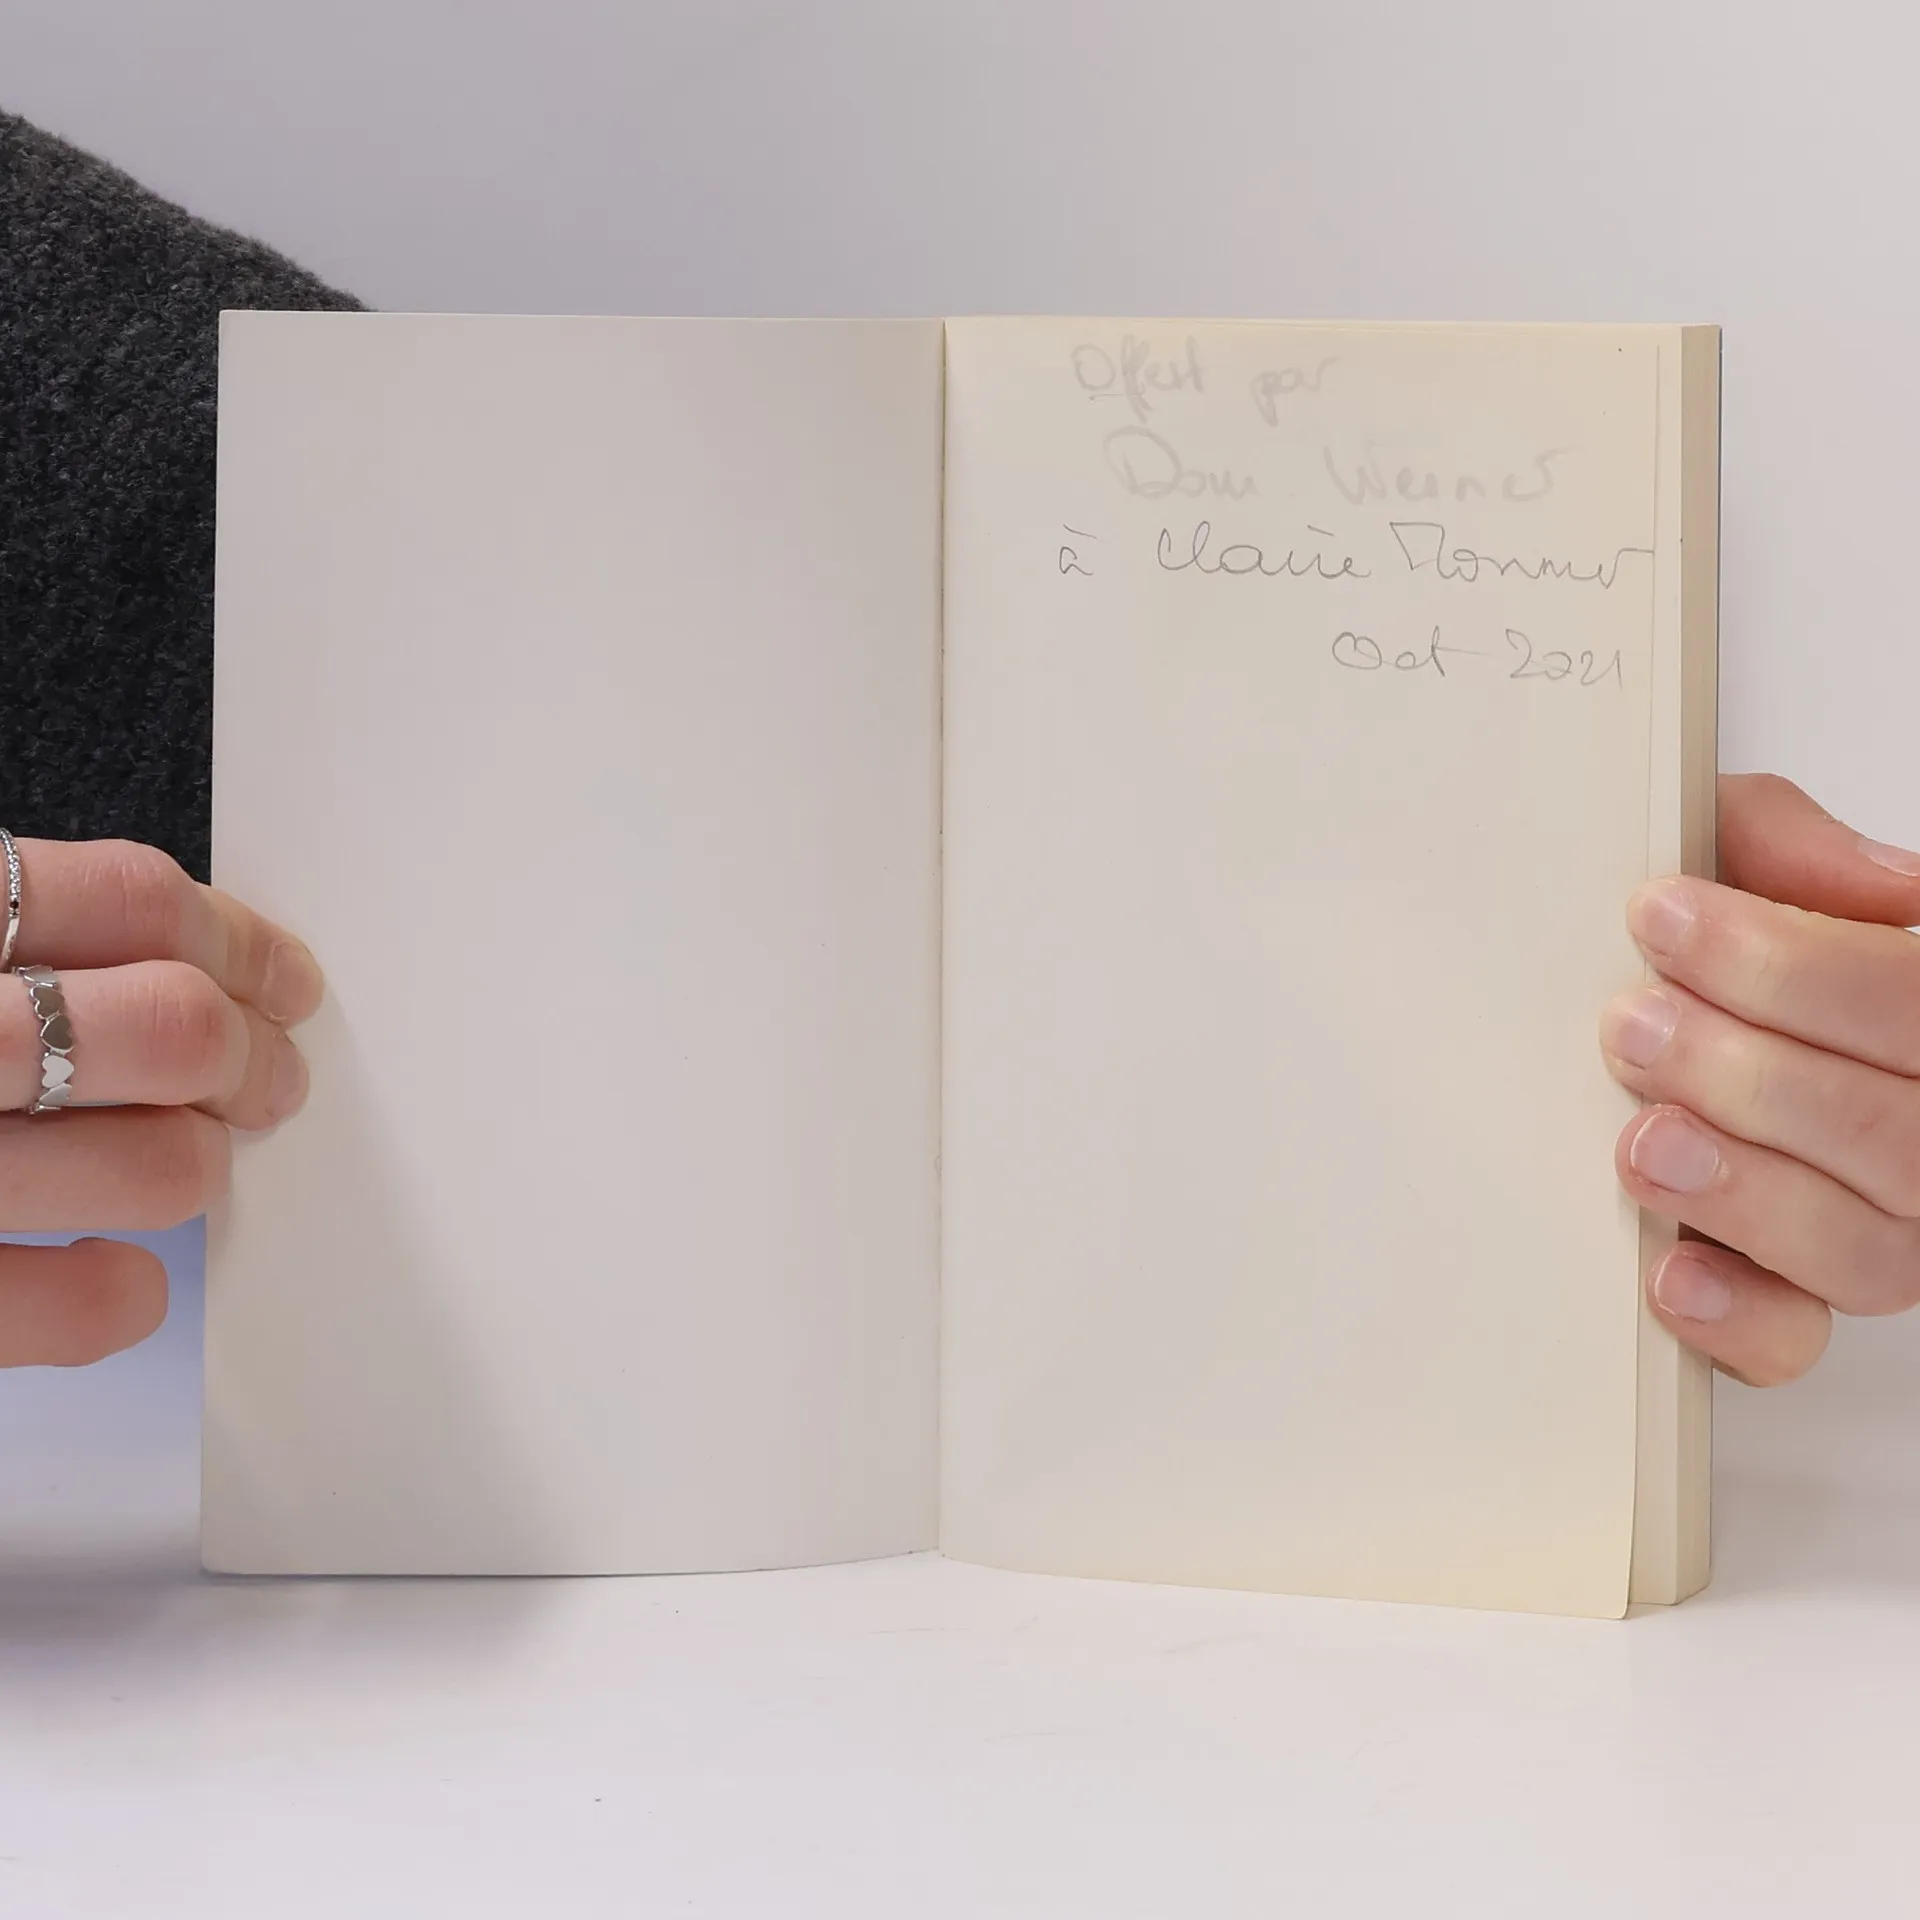 Offert par
Dom. Werner
à Claire Monnier
Oct 2021